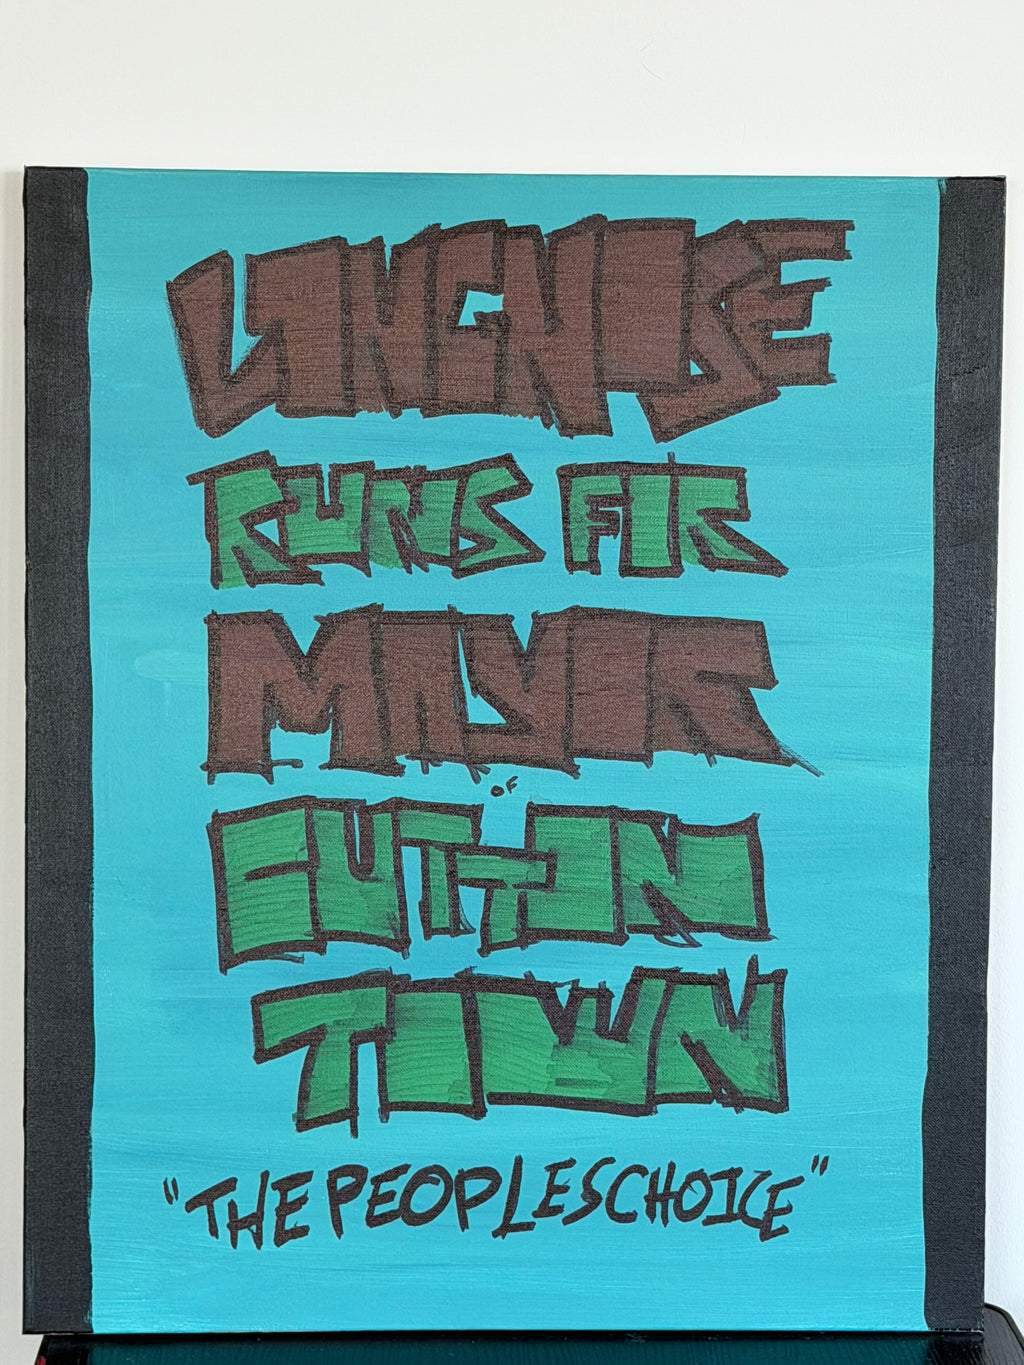 LONGNOSE
RUNS FOR
MAYOR
OF
CUTTON
TOWN
"THE PEOPLES CHOICE"